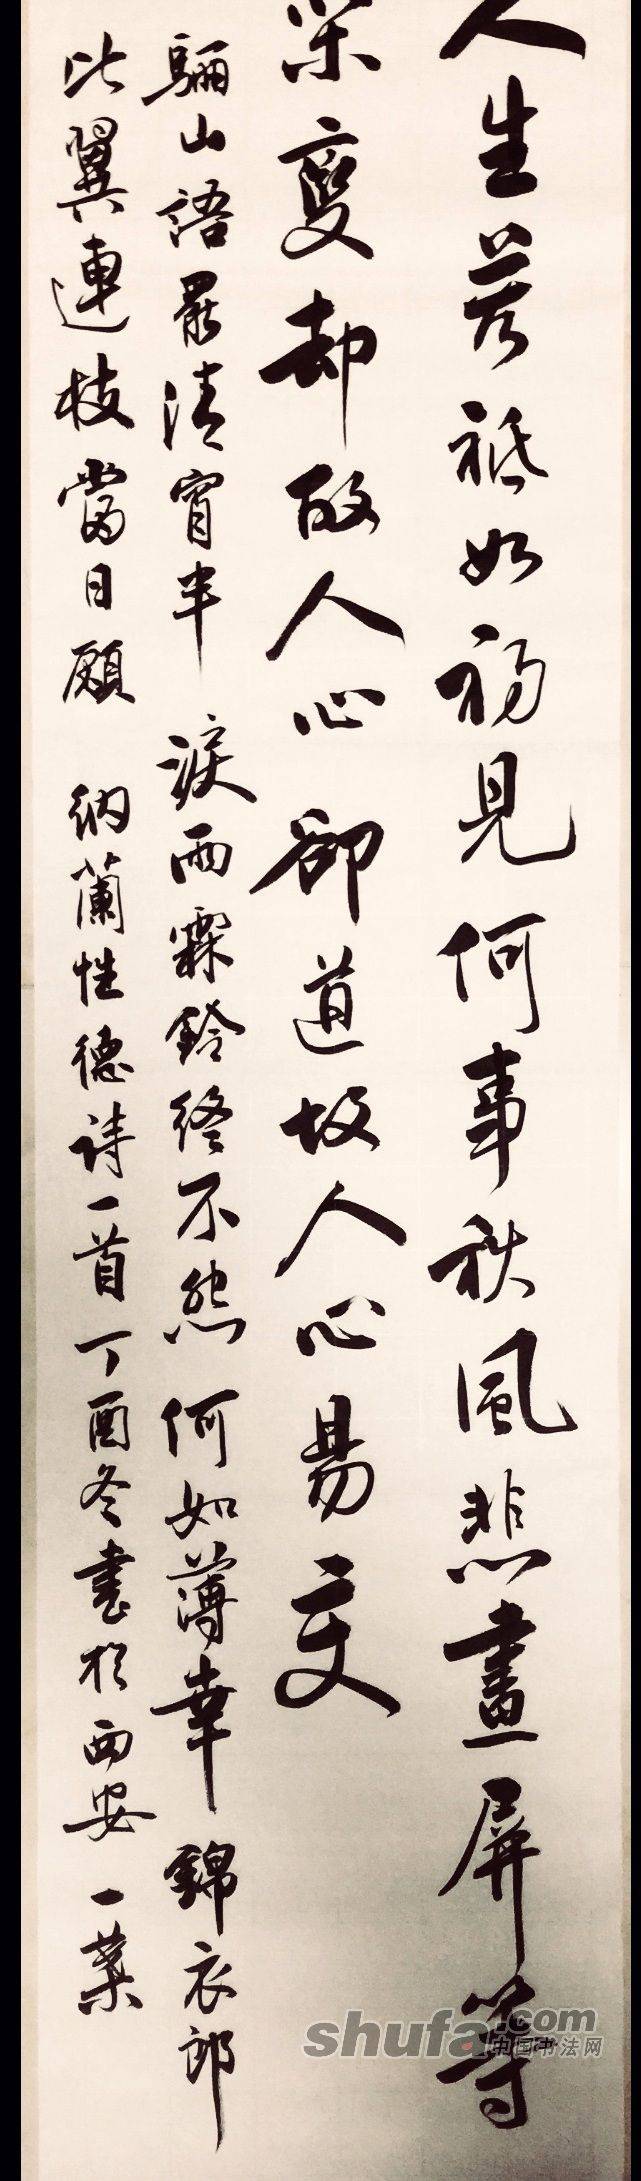 人生若祗如初見何事秋風悲畫屏等
閑變却故人心卻道故人心易变
驪山語罷清宵半淚雨霖鈴終不怨何如薄幸錦衣郎
比翼連枝當日願 納蘭性德詩一首丁酉冬書於西安 一葉
shufa.com
中国书法网